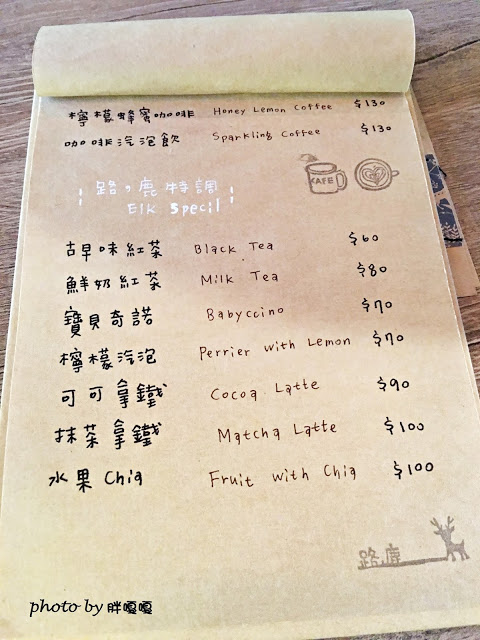 檸檬蜂蜜咖啡 Honey Lemon Coffee $130
咖啡汽泡飲 Sparkling Coffee $130
KAFE
路，鹿特調
Elk Specil
古早味紅茶 Black Tea $60
鮮奶紅茶 Milk Tea $80
寶貝奇諾 Babyccino $70
檸檬汽泡 Perrier with Lemon $70
可可拿鐵 Cocoa Latte $90
抹茶拿鐵 Matcha Latte $100
水果 Chia Fruit with Chia $100
路，鹿
photo by 胖嘎嘎